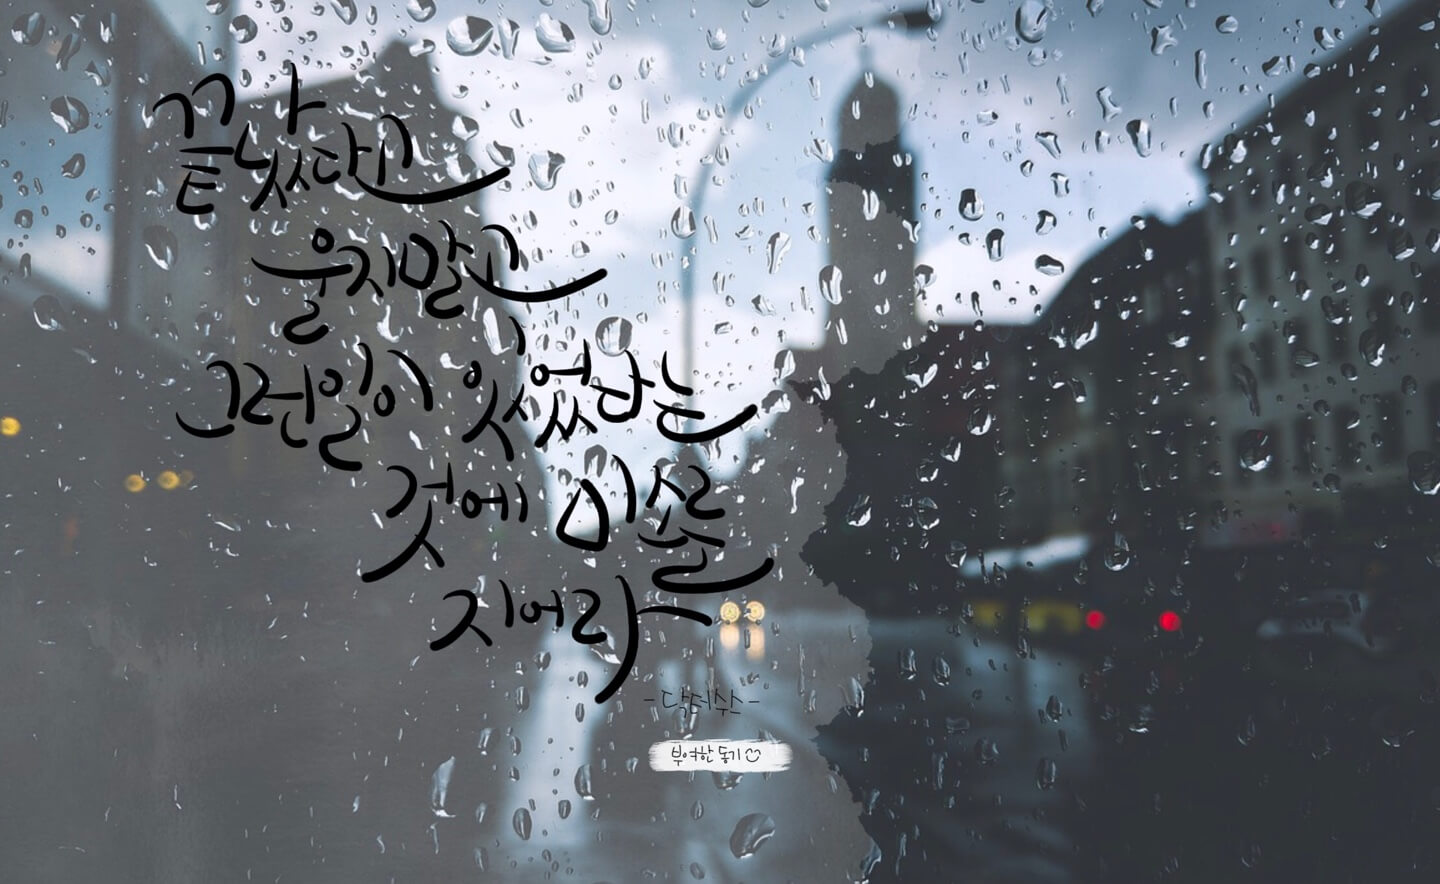 끝났다고
울지말고
그런일이 있었다는
것에 미소를
지어라
-닥터수스-
부여한 동기